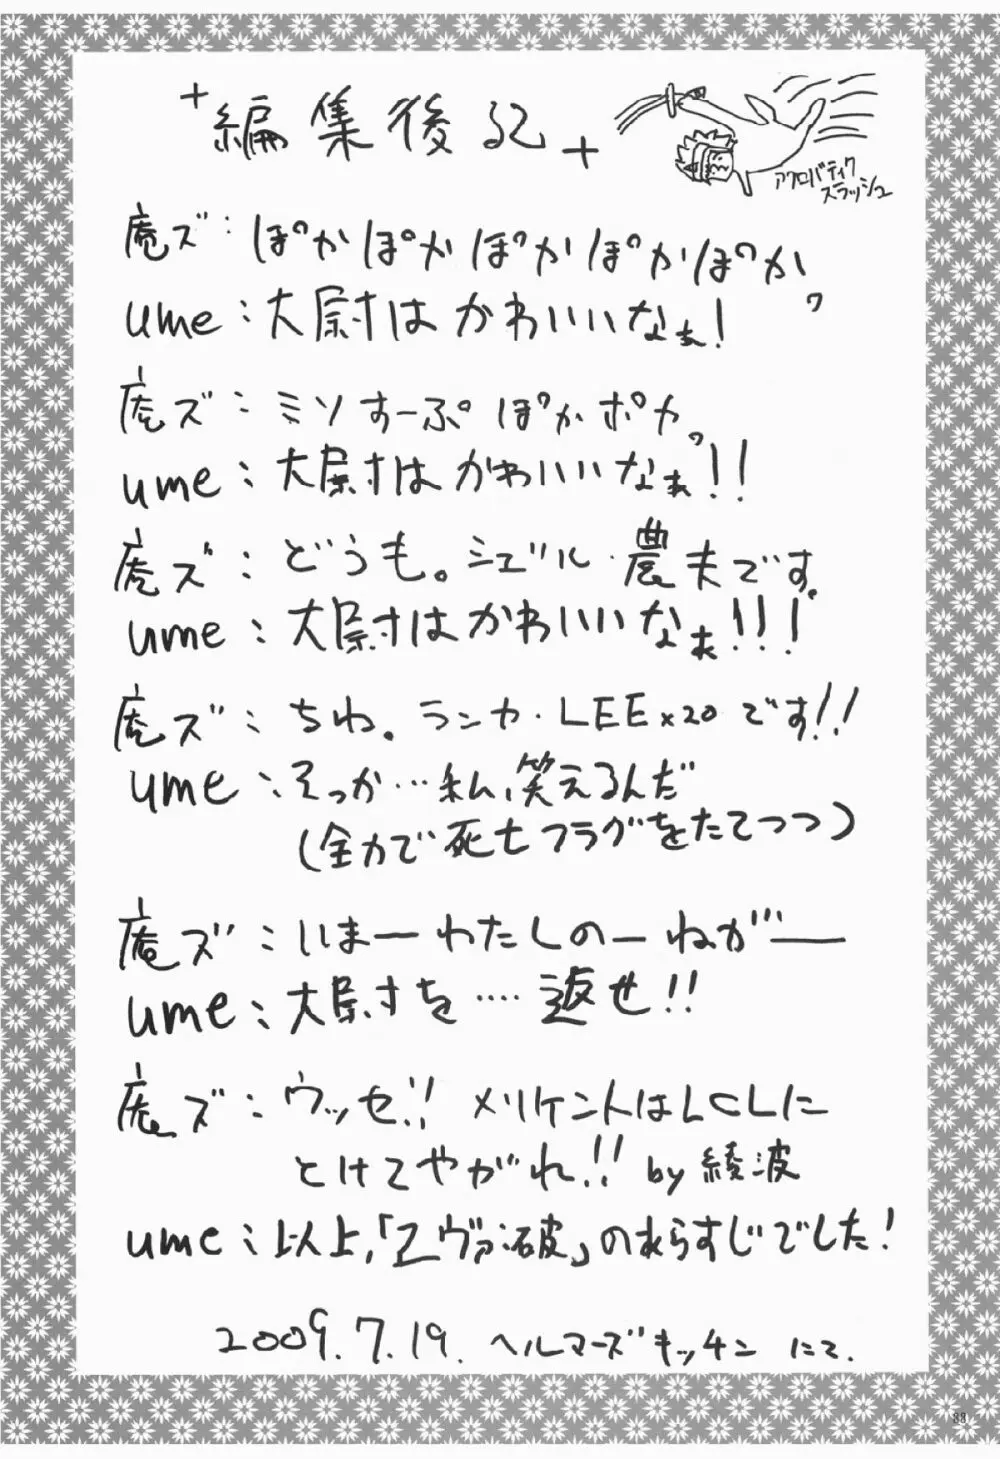 編集後記
アクロバティク
スラッシュ
庵ズ:ぽかぽかぽかぽかぽか。
ume:大尉はかわいいなぁ!
庵ズ:ミソすーぷぽかポカ。
ume:大尉はかわいいなぁ!!
庵ズ:どうも。シエル・農夫です。
ume:大尉はかわいいなぁ!!!
庵ズ:ちわ。ランカ・LEE×20です!!
ume:そっか…私、笑えるんだ
(全力で死亡フラグをたてつつ)
庵ズ:いまーわたしのーねがー
ume:大尉を‥‥返せ!!
庵ズ:ウッセ!! メリケントはLCLに
とけてやがれ!! by綾波
ume:以上、「ヱヴァ:破」のあらすじでした!
2009.7.19. ヘルマーズキッチン にて.
88